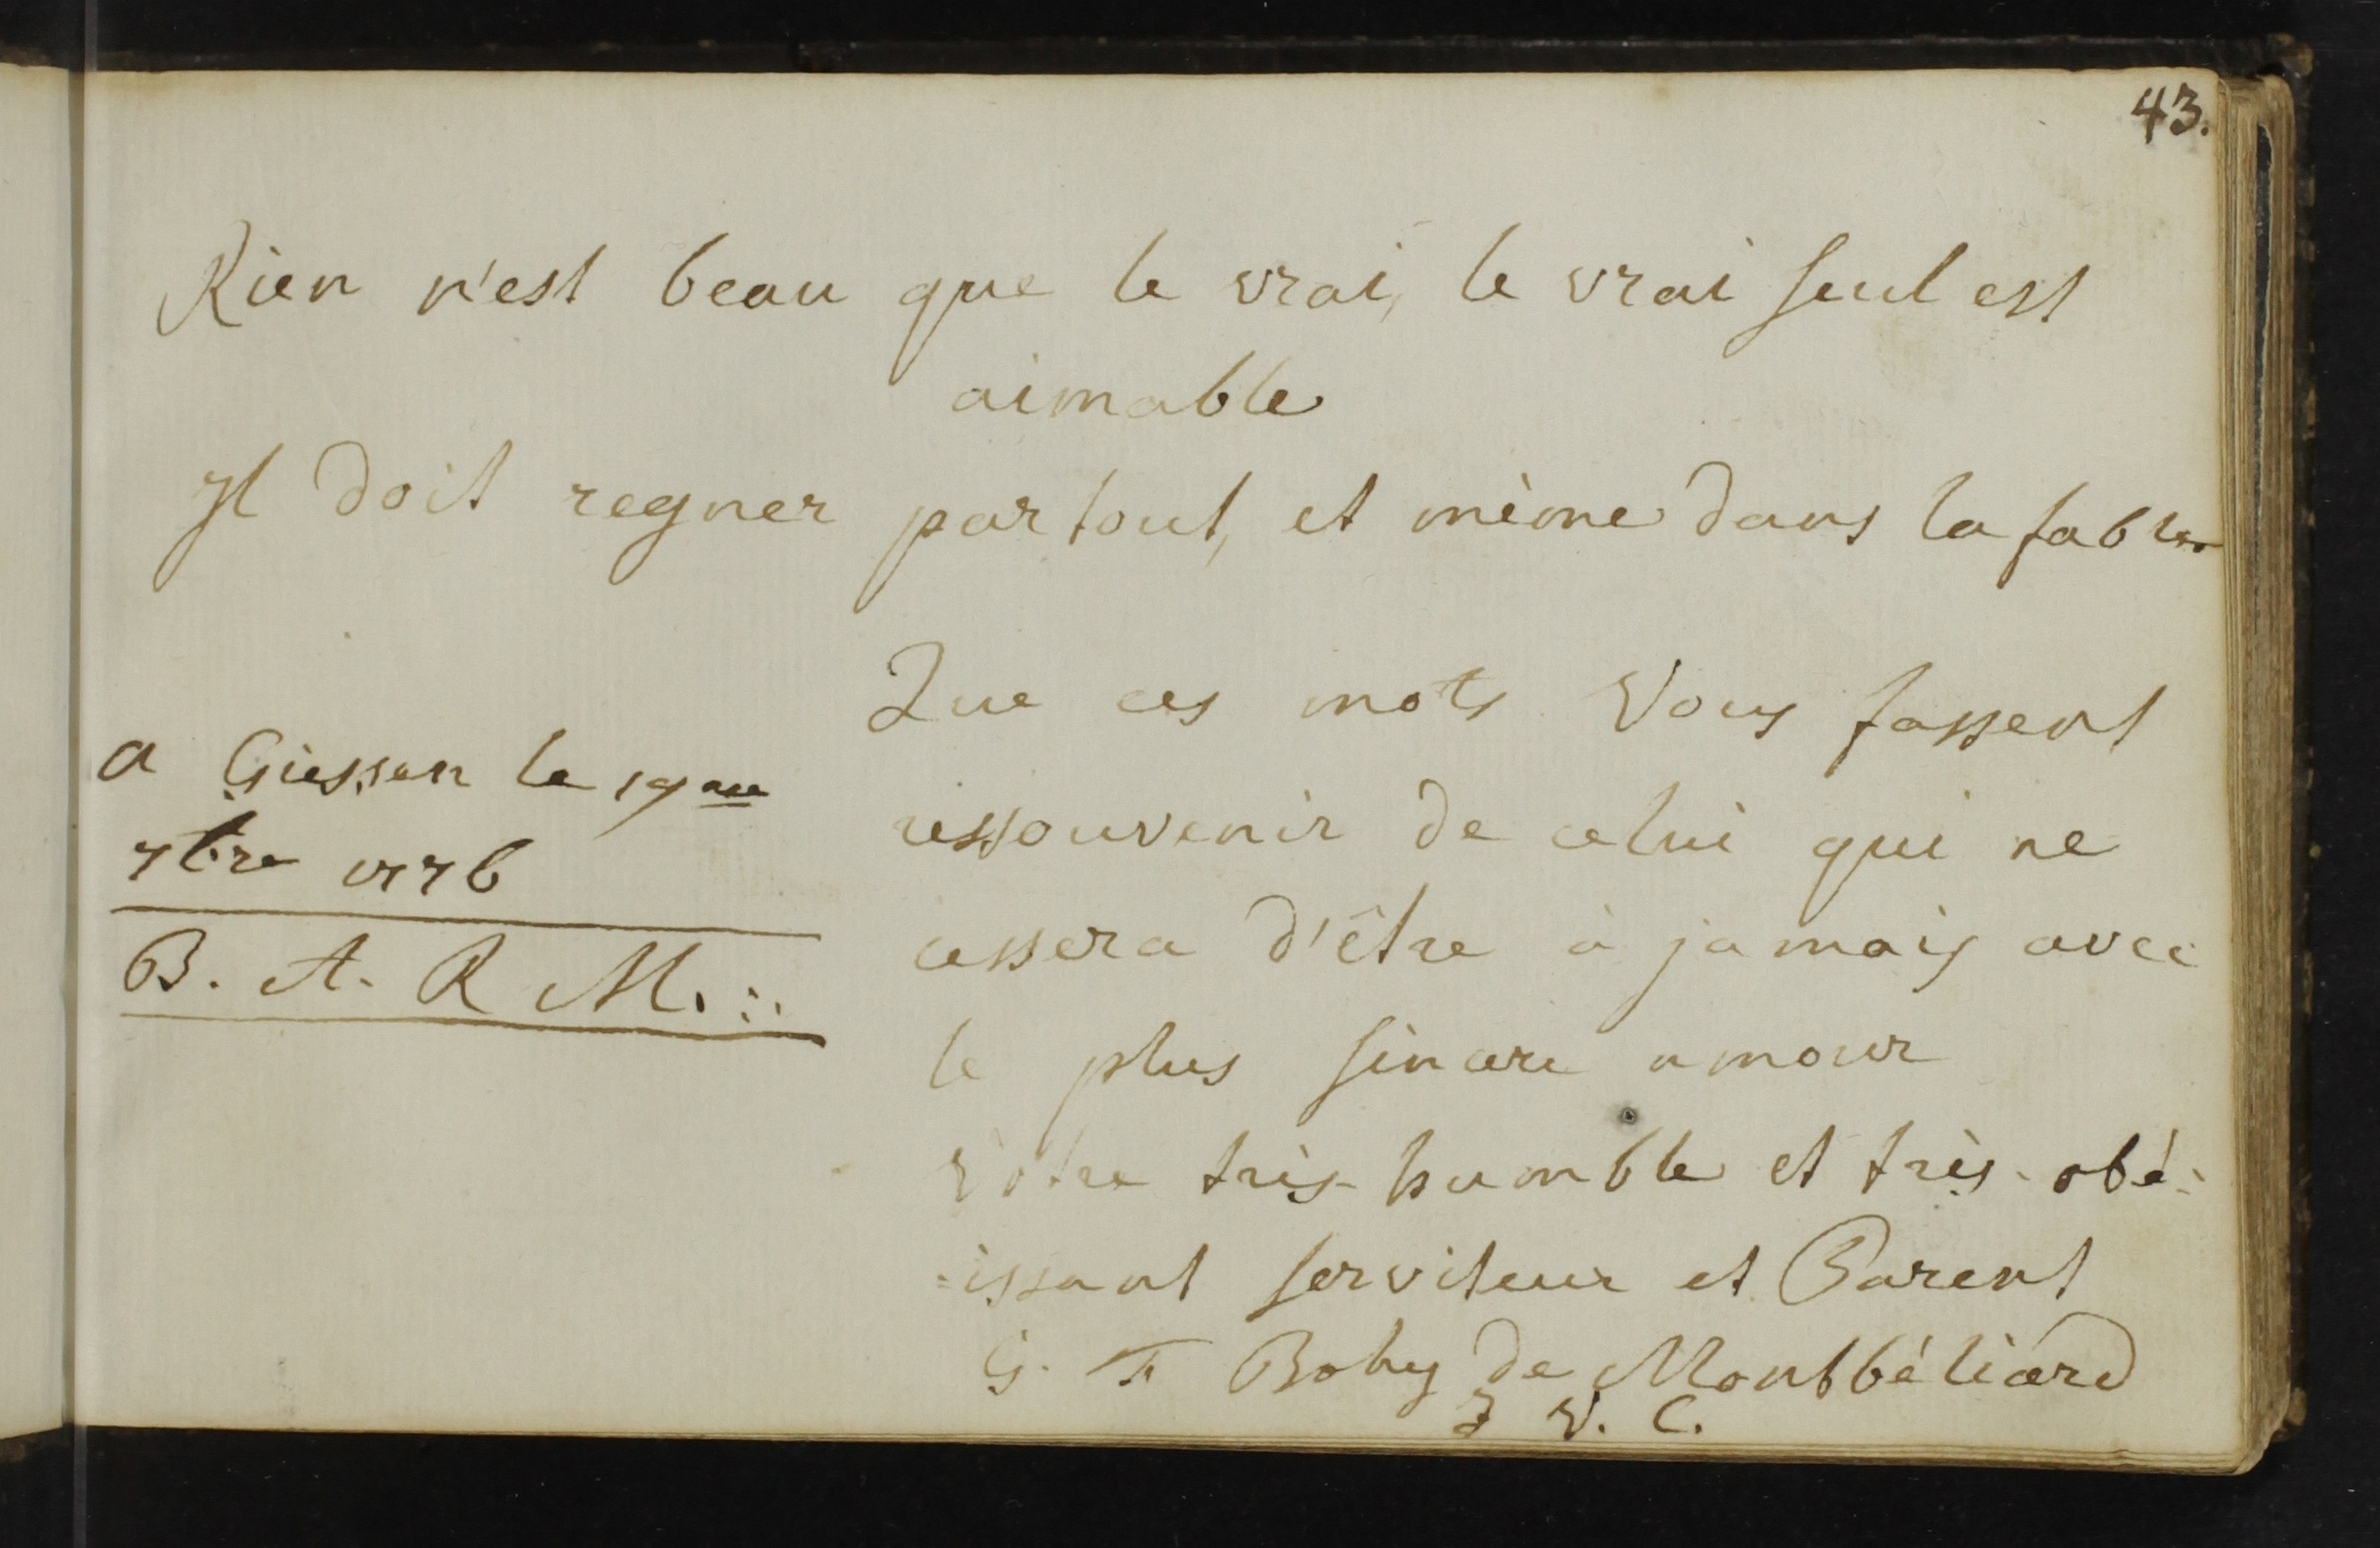 43.
Rien n'est beau que le vrai, le vrai seul est
aimable
Il doit regner partout, et mème dans la fable
Que ces mots Vous fassent
ressouvenir de celui qui ne
cessera d'être à jamais avec
le plus sincere amour
Votre très-humble et très-obé-
-issant serviteur et Parent
G. F Bohy de Montbéliard
J V. C.
a Giessen le 19me
7bre 1776
B. A. R M.